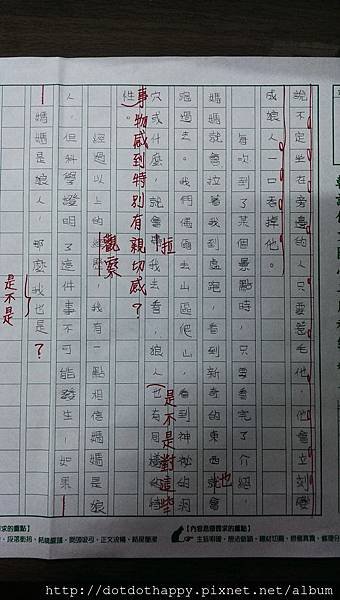 說不定坐在旁邊的人只要惹毛他，他會立刻變
成狼人一口吞掉他。
每次到了某個景點時，只要看完了介紹，
媽媽就會拉著我到處跑，看到新奇的東西就會
也
跑過去。我們偶爾去山區爬山，看到神祕的洞
穴或什麼，就會拉我去看，狼人也有同樣的特
是不是對這些
事物感到特別有親切感？
性。
經過以上的，我有一點相信媽媽是狼
觀察
人，但科學證明了這件事不可能發生！如果
媽媽是狼人，那麼我也是？
是不是
求的重點】
【內容思想要求的重點】
http://dotdothappy.pixnet.net/album